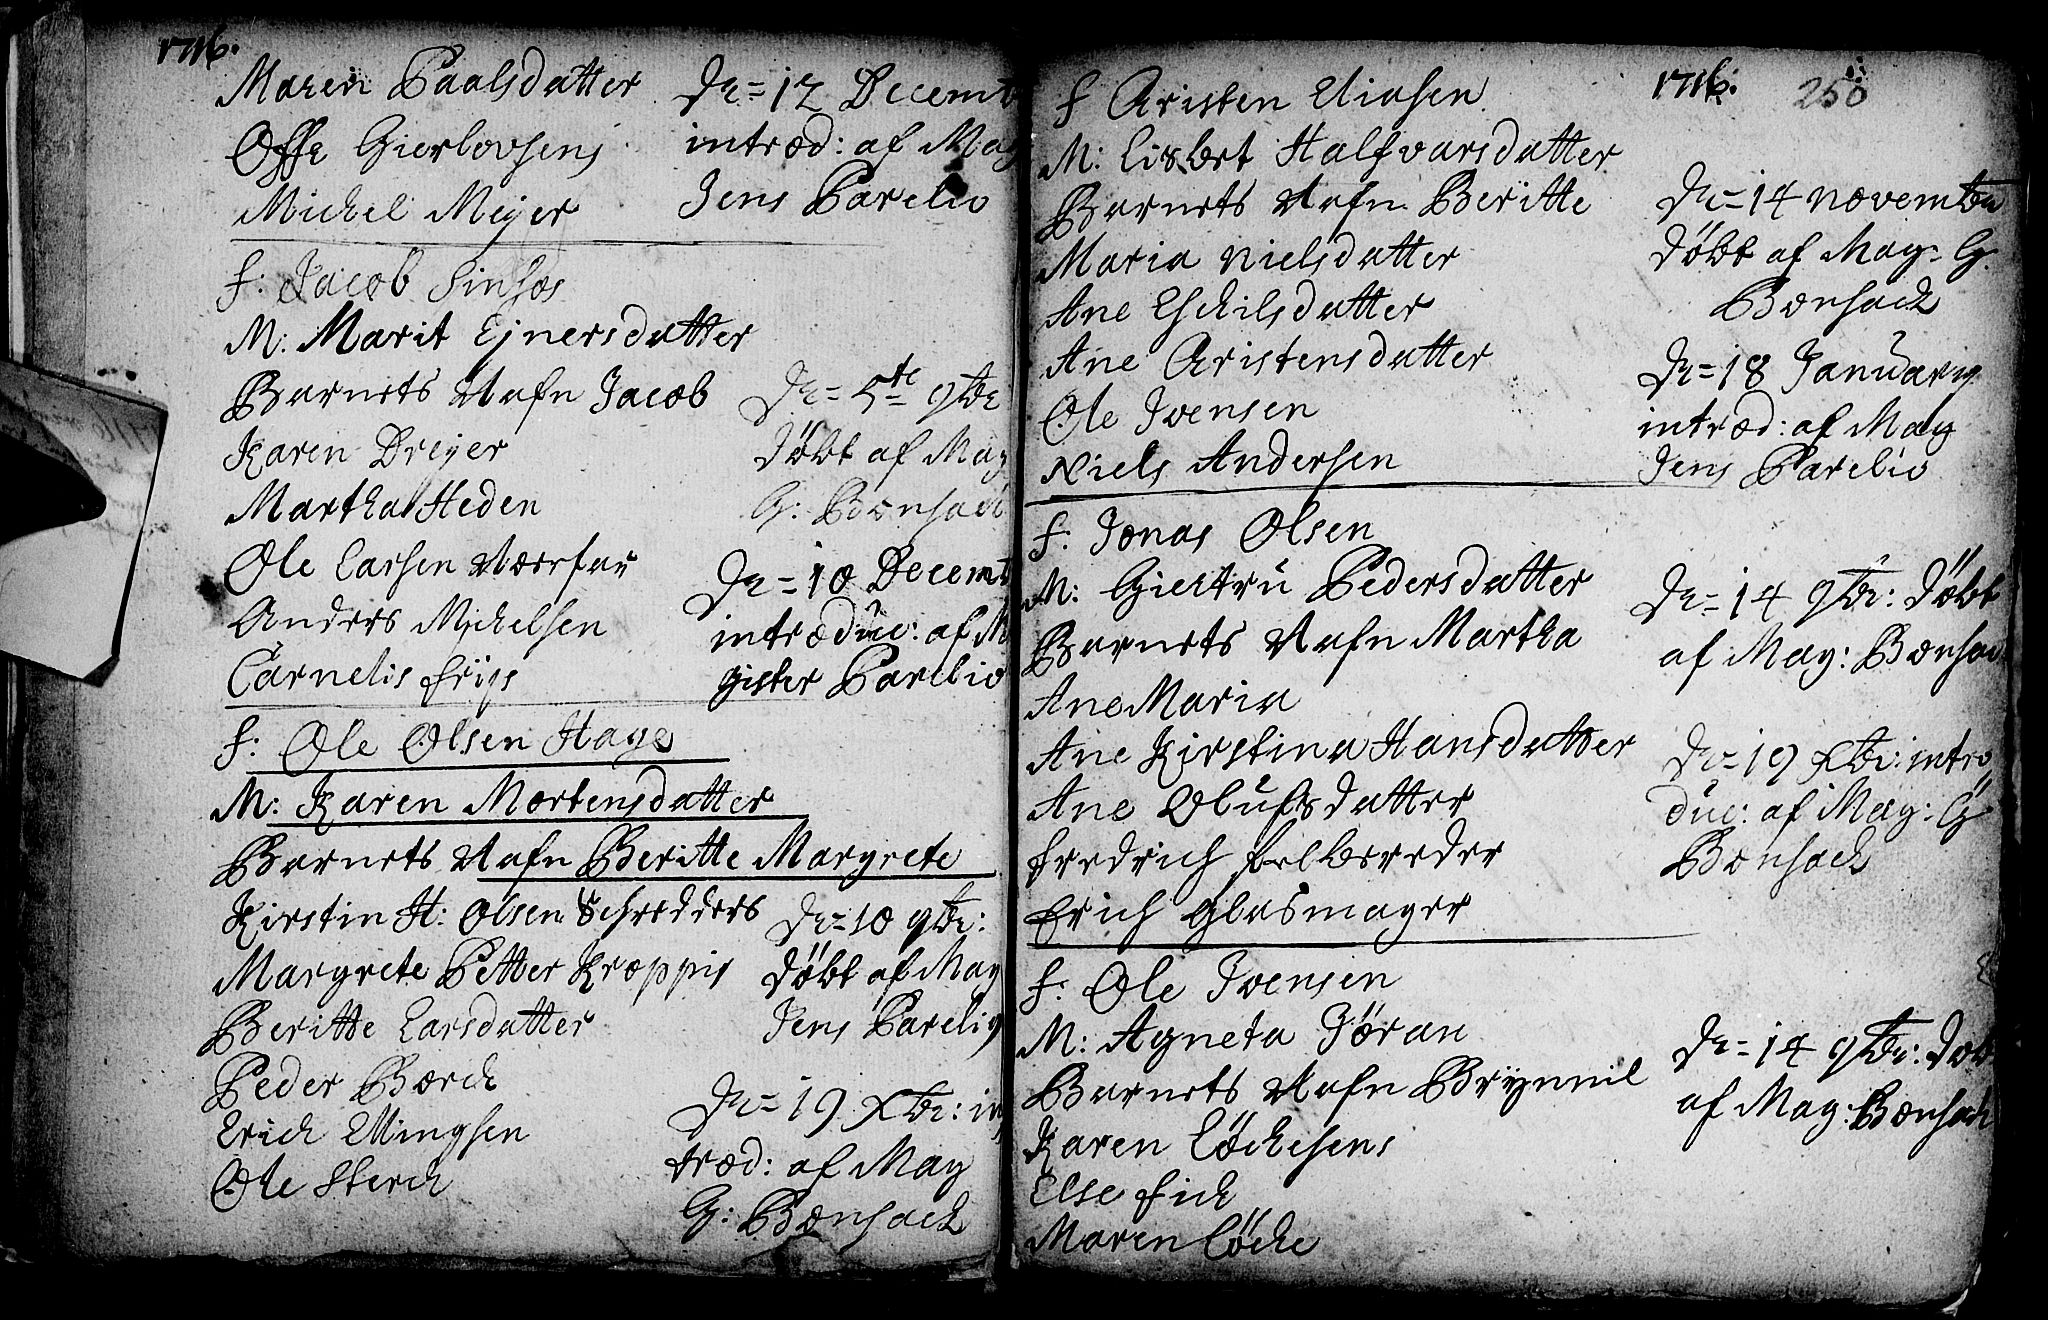 1716.
Maren Paalsdatter
Offe Gierlovsens
Michel Meyer
Dr = 12 Decemb
introd: af Mag
Jens Parelio
f: Jacob
M: Marit Ejnersdatter
Barnets Nafn Jacob
Karen Dreyer
Martha Heden
Ole Larsen
Anders Michelsen
Carnelis friis
Dr = 5te 9br
Døbt af Mag
G: Bonsack
Dr = 10 Decemb
introduc: af M
gister Parelio
f: Ole Olsen Hage
M: Karen Mortensdatter
Barnets Nafn Beritte Margrete
Kirstin H: Olsen Schredders
Margrete Petter Kroppis
Beritte Larsdatter
Peder Borch
Erich Ellingsen
Ole Sterch
Dr = 10 9br:
Døbt af Mag
Jens Parelio
Dr = 19 Xbr: in
trod: af Mag
G: Bonsack
1716. 250
f Christen Eliasen
M: Lisbet Halfvarsdatter
Barnets Nafn Beritte
Maria Nielsdatter
Ane Eschilsdatter
Ane Christensdatter
Ole Ivensen
Niels Andersen
Dr = 14 november
Døbt af Mag: G.
Bonsack
Dr = 18 Januarij
introd: af Mag
Jens Parelio
f: Jonas Olsen
M: Giertru Pedersdatter
Barnets Nafn Martha
Ane Maria
Ane Kirstina Hansdatter
Ane Olufsdatter
fredrich felbereder
Erich Glasmager
Dr = 14 9br: Døbt
af Mag: Bonsac
Dr = 19 Xbr: intro
duc: af Mag: G
Bonsack
f: Ole Ivensen
M: Agneta Jöran
Barnets Nafn Brynnil
Karen Löchesens
Else fich
Maren Löche
Dr = 14 9br: Døb
af Mag: Bonsack